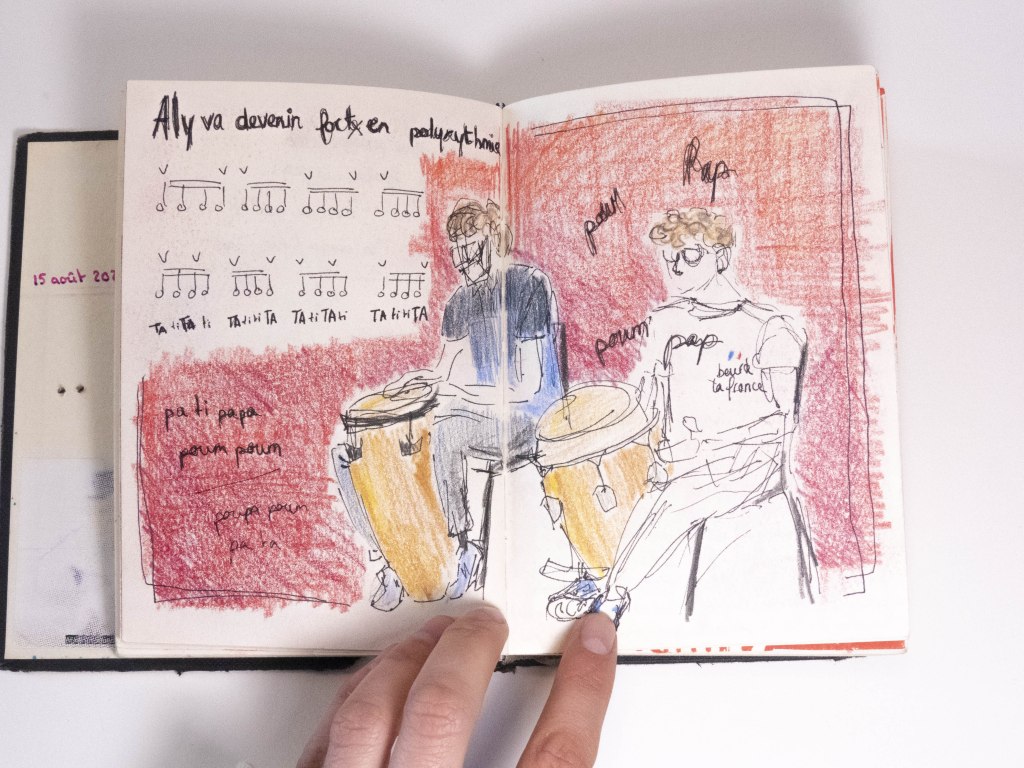 Aly va devenir foctx en polyrythmie
TA ti TA ti TA ti ti TA TA ti TA ti TA ti ti TA
pa ti papa
poum poum
poupa poum
pa ta
15 août 202
Pap
poum
poum
pap
beurk
la france